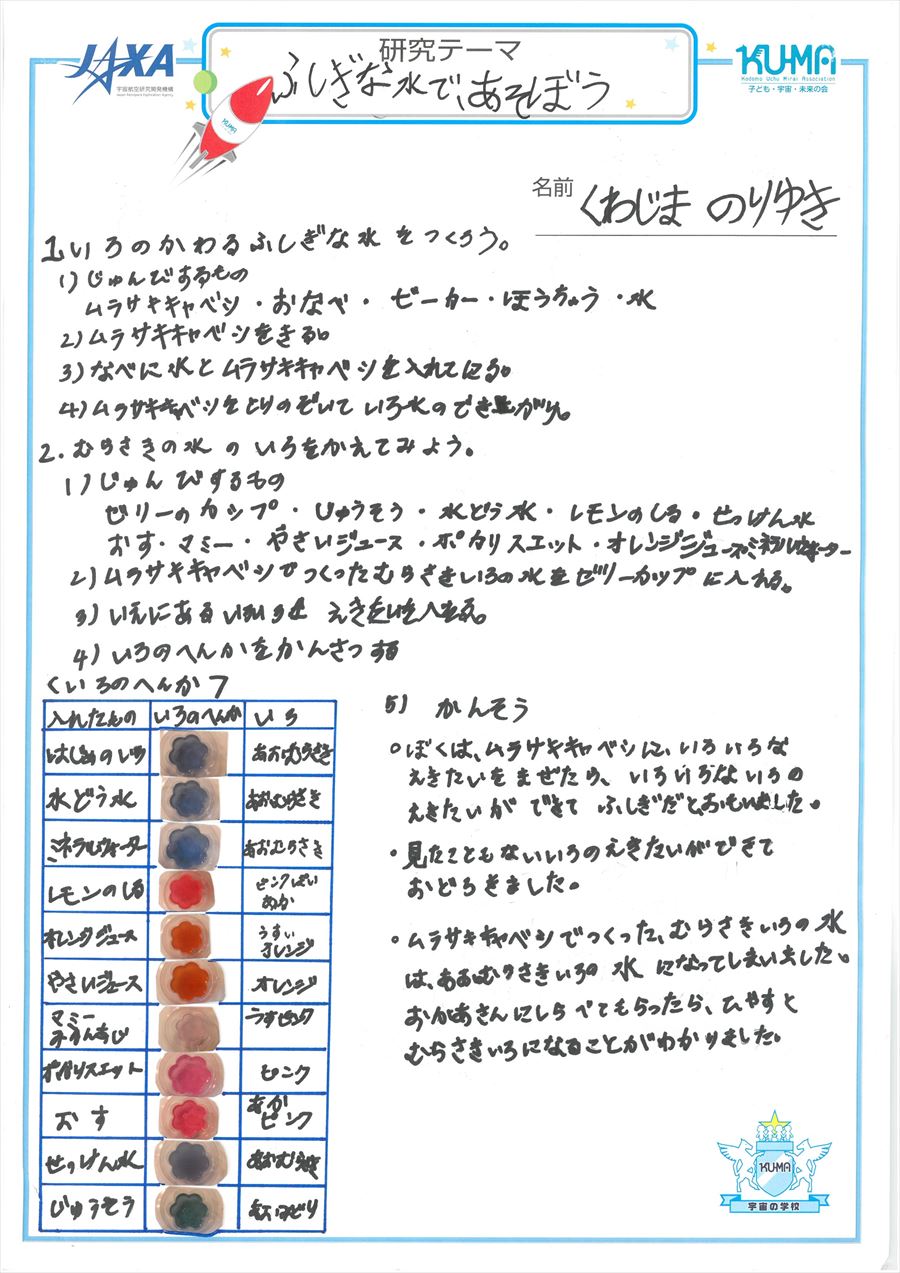 JAXA
宇宙航空研究開発機構
Japan Aerospace Exploration Agency
研究テーマ
ふしぎな水で、あそぼう
KUMA
KUMA
Kodomo Uchu Mirai Association
子ども・宇宙・未来の会
名前 くわじま のりゆき
1.いろのかわるふしぎな水をつくろう。
1)じゅんびするもの
ムラサキキャベシ・おなべ・ビーカー・ほうちゅう・水
2)ムラサキキャベシをきる。
3)なべに水とムラサキキャベシを入れてにる。
4)ムラサキキャベシをとりのぞいていろ水のできあがり。
2.むらさきの水のいろをかえてみよう。
1)じゅんびするもの
ゼリーのカップ・じゅうそう・水どう水・レモンのしる・せっけん水
おす・マミー・やさいジュース・ポカリスエット・オレンジジュース・ミネラルウォーター
2)ムラサキキャベシでつくったむらさきいろの水をゼリーカップに入れる。
3)いえにある えきたいを入れる。
4)いろのへんかをかんさつする
くいろのへんか7
入れたもの いろのへんか いろ
はじめのいろ あおむらさき
水どう水 あおむらさき
ミネラルウォーター あおむらさき
レモンのしる ピンクぱい
あか
オレンジジュース うすい
オレンジ
やさいジュース オレンジ
マミー
みかんあじ うすピンク
ポカリスエット ピンク
おす あか
ピンク
せっけん水 あおむらさき
じゅうそう あおみどり
5) かんそう
○ぼくは、ムラサキキャベシに、いろいろな
えきたいをまぜたら、いろいろないろの
えきたいができて ふしぎだと、おもいました。
・見たこともないいろのえきたいができて
おどろきました。
・ムラサキキャベシでつくった、むらさきいろの水
は、あおむらさきいろの水になってしまいました。
おかあさんにしらべてもらったら、ひやすと
むらさきいろになることがわかりました。
KUMA
宇宙の学校